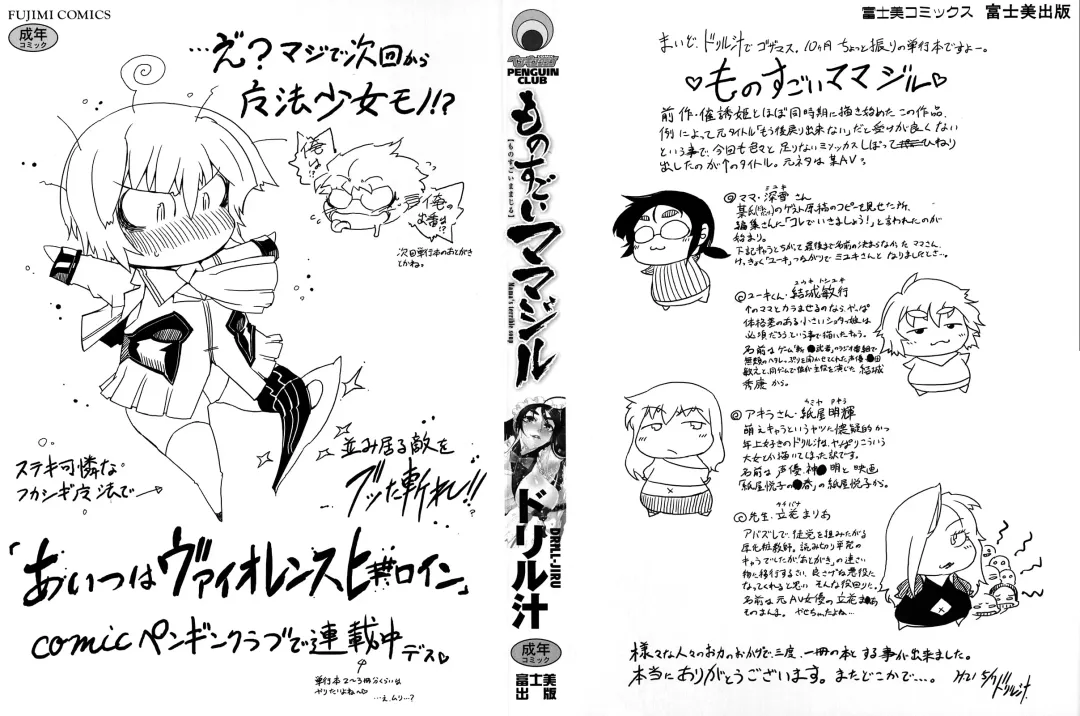 FUJIMI COMICS
成年
コミック
…え?マジで次回から
魔法少女モノ!?
俺は!?
俺の
お番は!?
次回単行本のあとがき
とかね。
ステキ可憐な
フカシギな法で→
並み居る敵を
ブッた斬れ!!
「あいつはヴァイオレンスヒロイン」
comicペンギンクラブで連載中デス♡
単行本2〜3冊分くらいは
やりたいよね〜♡
…え、ムリ…?
PENGUIN
CLUB
ものすごいママジル
【ものすごいままじる】
Mama's terrible soup
ドリル汁
DRILL-JIRU
成年
コミック
富士美
出版
富士美コミックス 富士美出版
まいど、ドリル汁でゴザマス。10ヶ月ちょっと振りの単行本ですよー。
♡ものすごいママジル♡
前作・催誘姫とほぼ同時期に描き始めたこの作品、
例によって元タイトル「もう後戻り出来ない」だと受けが良くない
という事で、今回も君マと足りないミソッカスしぼってひねり
出したのが↑のタイトル。元ネタは某AV。
◎ママ・深雪さん
ミユキ
のゲスト原稿のコピーで見せた所、
編集さんに「コレでいきましょう!」と言われたのが
始まり。
下記キャラとちがって最後まで名前の決まらなかったママさん。
けっきょく「ユーキ」つながりでミユキさんとなりましたとさ…。
◎ユーキくん・結城敏行
ユウキ トシユキ
↑のママとカラませるのなら、やっぱ
体格差のある小さいショタっ娘は
必須だろうという事で描いたキャラ。
名前はゲーム「斬●武者」のラジオ番組で
無類のヘタレっぷりを聞かせてくれた声優・●田
敏えと、同ゲームで彼が主役を演じた 結城
秀康から。
◎アキラさん・紙屋明輝
カミヤ アキラ
萌えキャラというヤツに懐疑的かつ
年上好きのドリル汁は、やっぱりこういう
大女も描いてしまった訳です。
名前は声優・神●明と映画
「紙屋悦子の●春」の紙屋悦子から。
◎先生・立花まりあ
タチバナ
アバズレで、徒党を組みたがる
厚化粧教師。読み切り単発の
キャラでしたが「あとがき」の速さい
物に移行するさい、良さげな悪役に
なってくれると思い そんな役回りに。
名前は元AV女優の立花ま●あ
そのまんま。やせちゃったよね…
様々な人々のお力のおかげで、三度、一冊の本とする事が出来ました。
本当にありがとうございます。またどこかで…。
H21 5/ ドリル汁